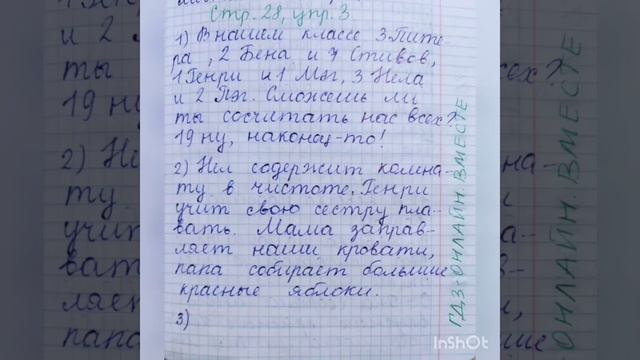 Стр. 28, упр. 3
1) В нашем классе 3 Пите-
ра, 2 Бена и 7 Стивов,
1 Генри и 1 Мэг, 3 Нела
и 2 Пэг. Сможешь ли
ты сосчитать нас всех?
19 ну, наконец-то!
2) Нел содержит комна-
ту в чистоте. Генри
учит свою сестру пла-
вать. Мама заправ-
ляет наши кровати,
папа собирает большие
красные яблоки.
3)
ГДЗ: ОНЛАЙН. ВМЕСТЕ
InShOt